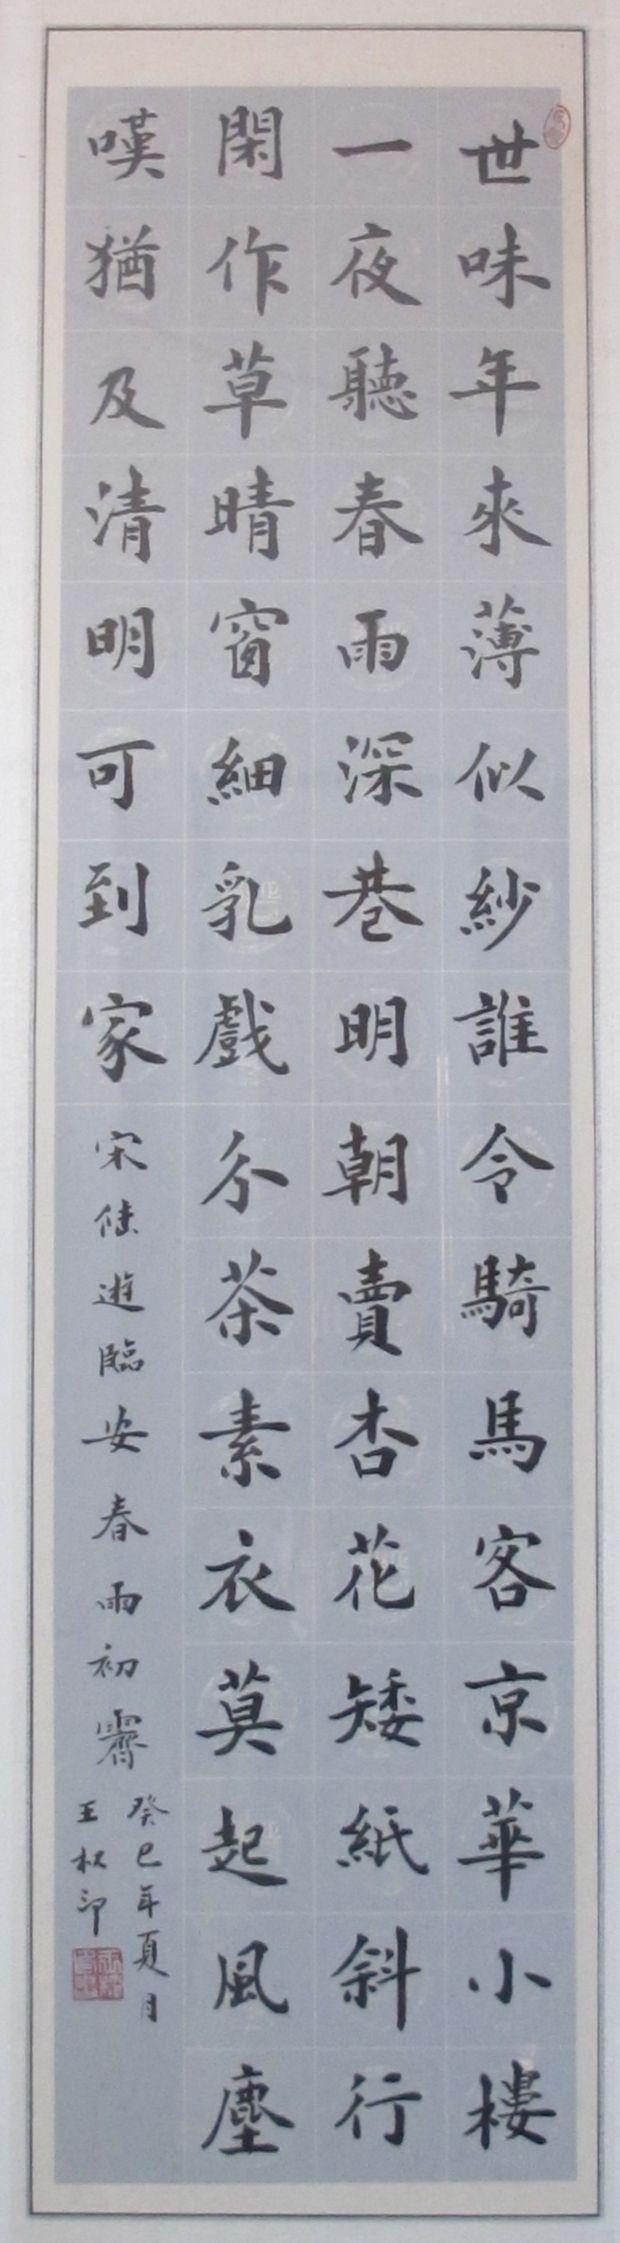 世味年來薄似紗誰令騎馬客京華小樓
一夜聽春雨深巷明朝賣杏花矮紙斜行
閑作草晴窗細乳戲分茶素衣莫起風塵
嘆猶及清明可到家
宋陸遊臨安春雨初霽
癸巳年夏月
王权印